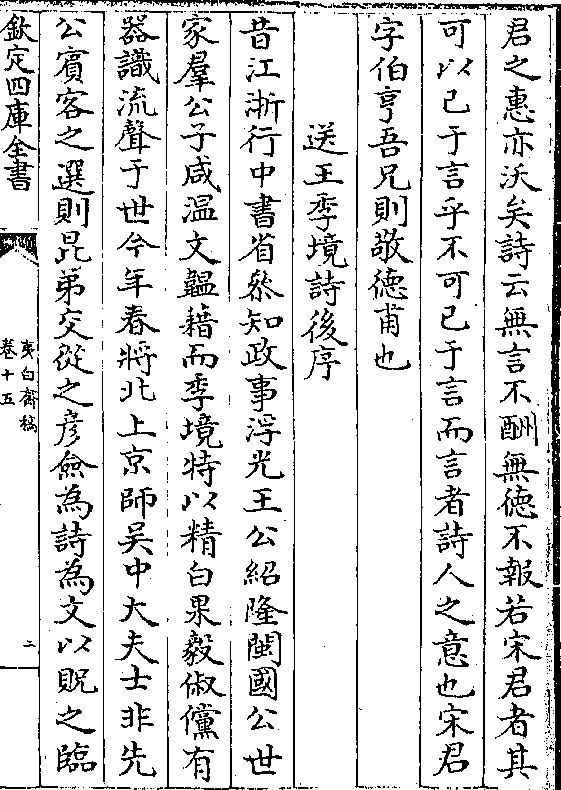 君之惠亦沃矣詩云無言不酬無德不報若宋君者其
可以已于言乎不可已于言而言者詩人之意也宋君
字伯亨吾兄則敬德甫也
送王季境詩後序
昔江浙行中書省叅知政事浮光王公紹隆閩國公世
家羣公子咸溫文韞藉而季境特以精白果毅俶儻有
器識流聲于世今年春將北上京師吴中大夫士非先
公賓客之選則昆弟交從之彦僉為詩為文以貺之臨
欽定四庫全書
夷白齋稿
卷十五
二